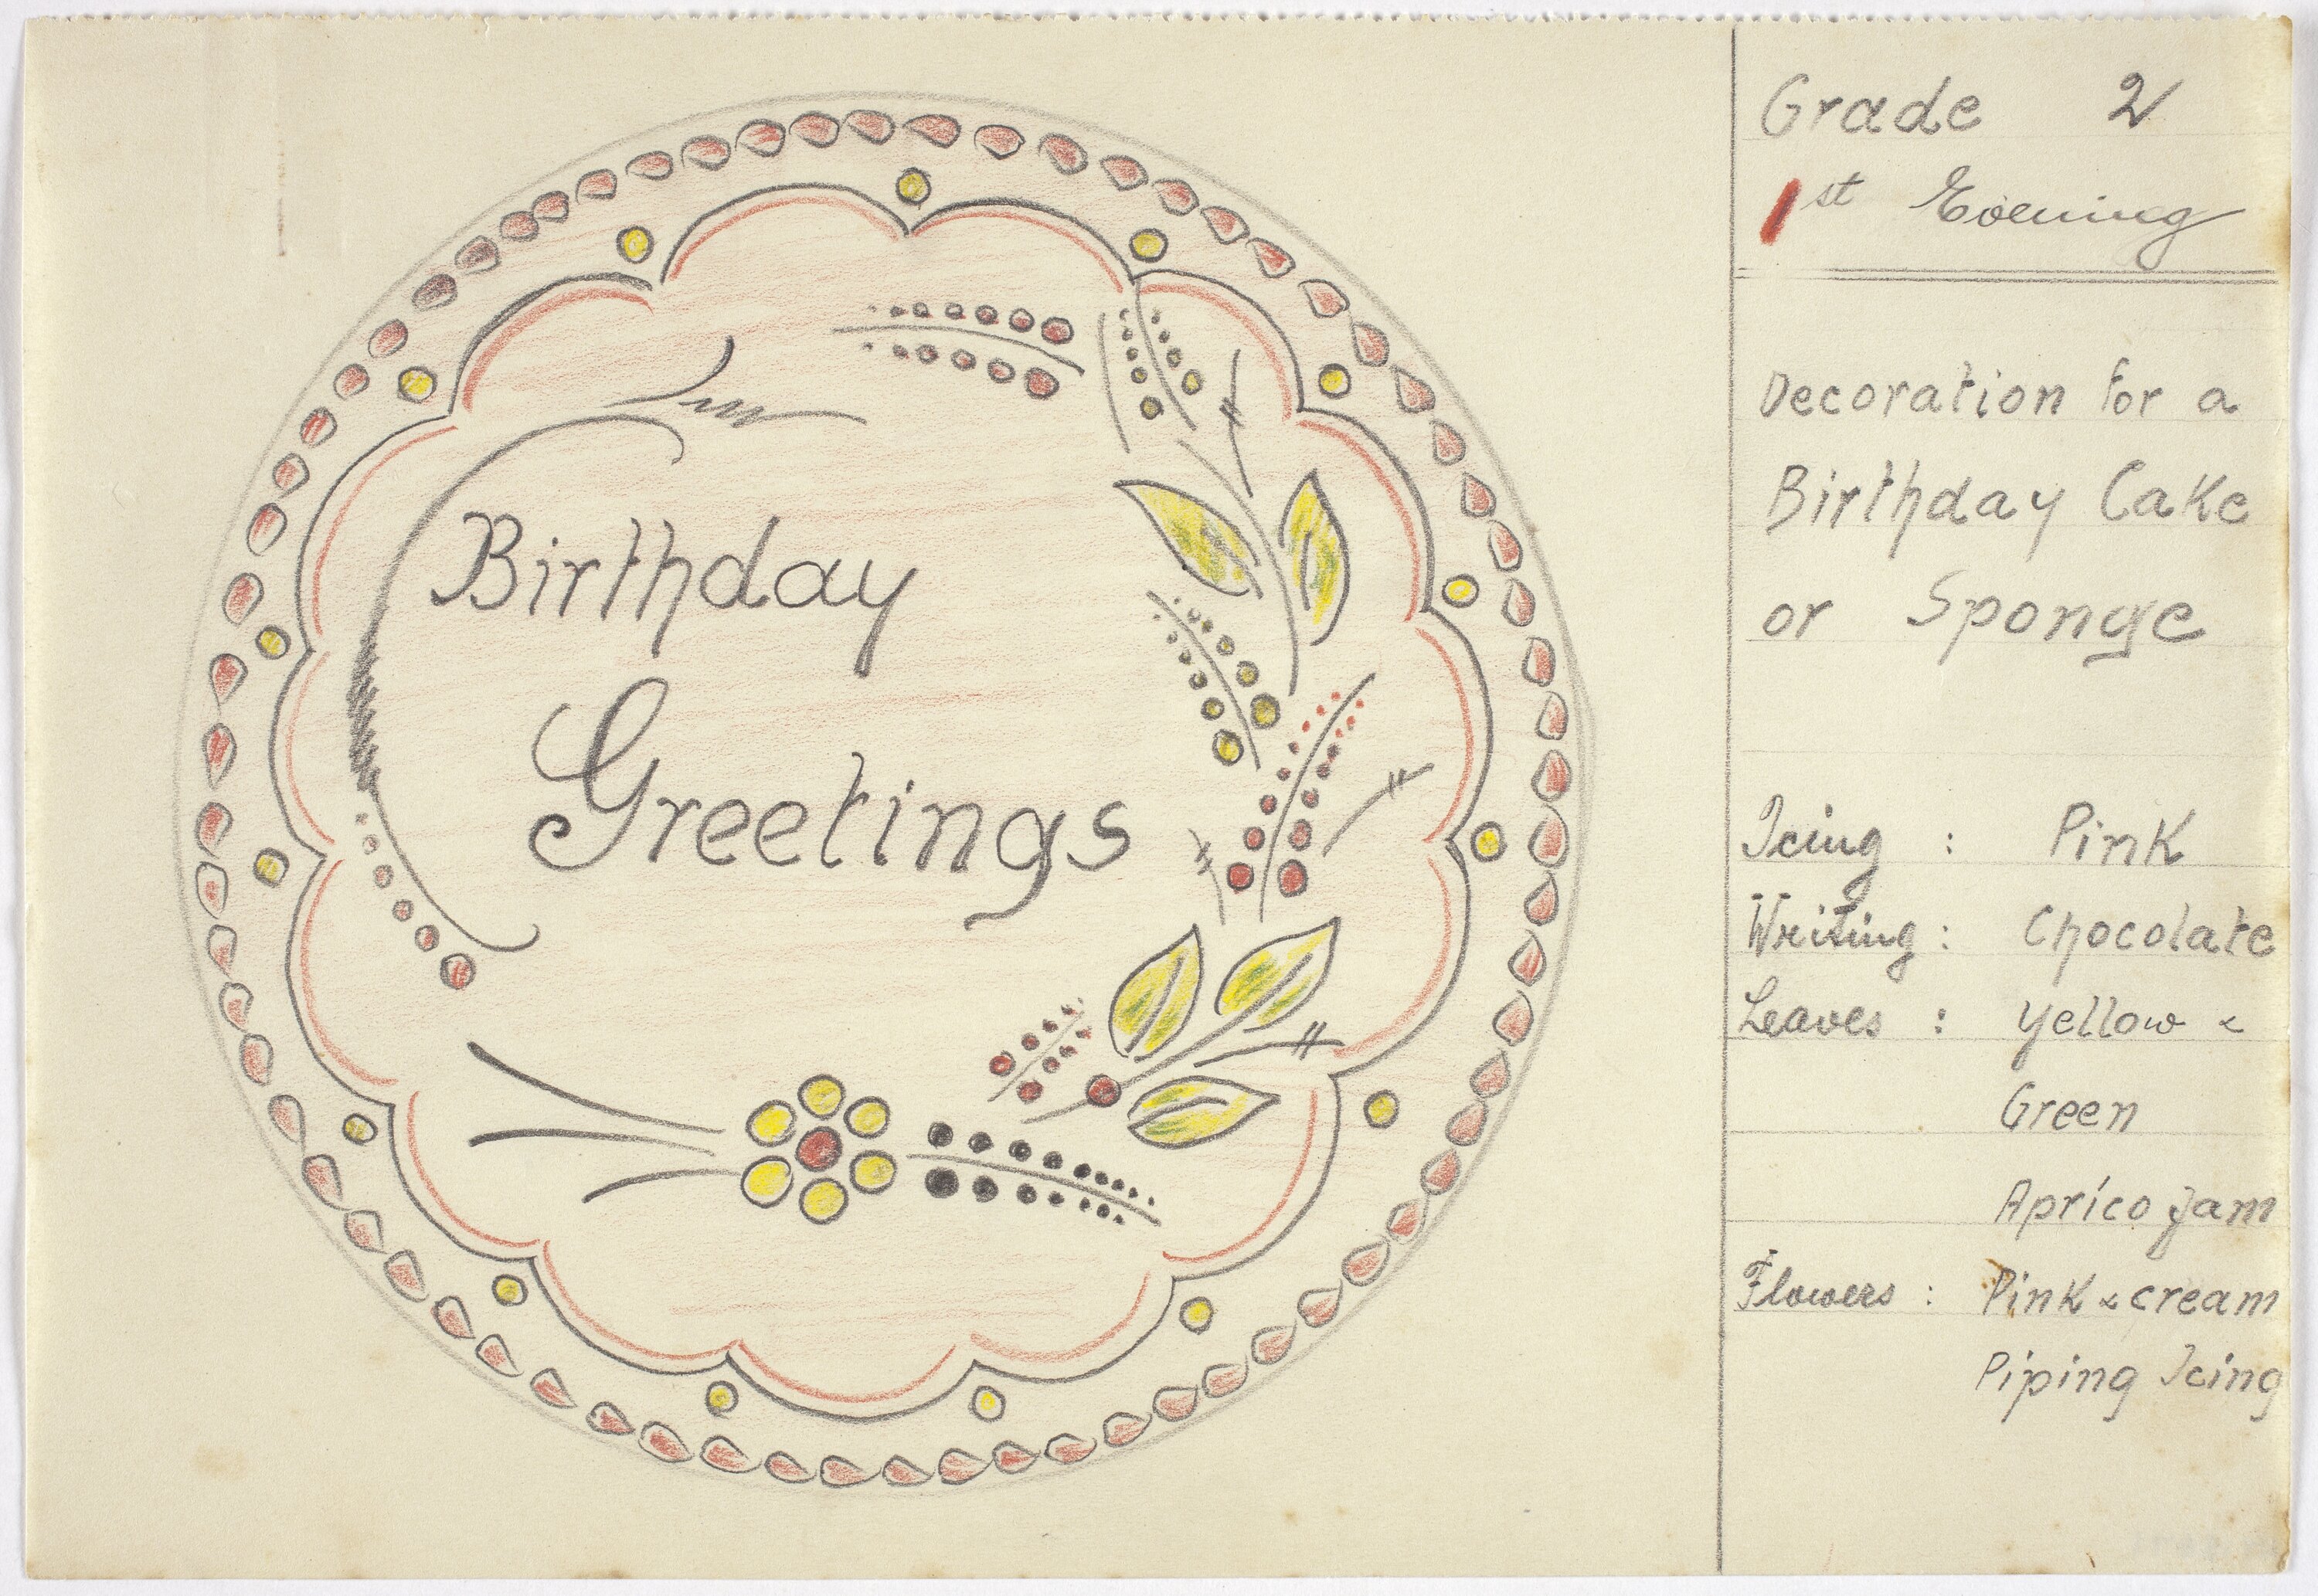 Birthday
Greetings
Grade 2
1st Evening
Decoration for a
Birthday Cake
or Sponge
Icing : Pink
Writing : Chocolate
Leaves : Yellow &
Green
Aprico Jam
Flowers : Pink & cream
Piping Icing